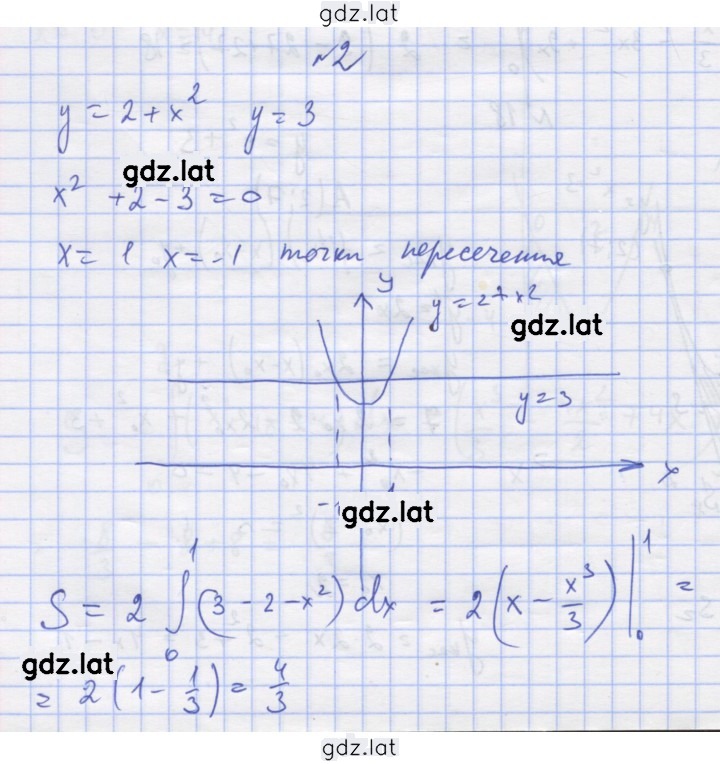 gdz.lat
№2
y = 2 + x² y = 3
gdz.lat
x² + 2 - 3 = 0
x = 1 x = -1 точки пересечения
y
y = 2 + x²
gdz.lat
y = 3
x
-1 1
gdz.lat
S = 2 ∫₀¹ (3 - 2 - x²) dx = 2 (x - x³/3) |₀¹ =
gdz.lat
= 2 (1 - 1/3) = 4/3
gdz.lat